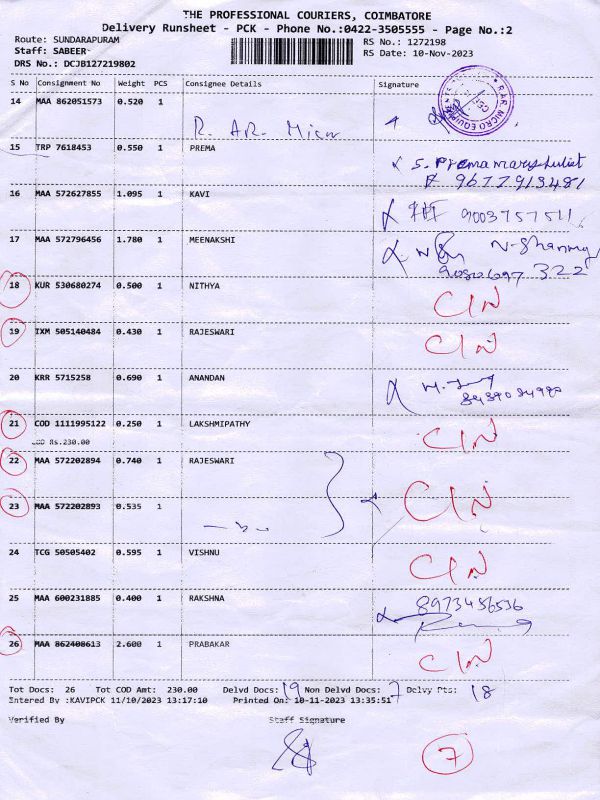 THE PROFESSIONAL COURIERS, COIMBATORE
Delivery Runsheet - PCK - Phone No.:0422-3505555 - Page No.:2
Route: SUNDARAPURAM
RS No.: 1272198
Staff: SABEER
RS Date: 10-Nov-2023
DRS No.: DCJB127219802
S No Consignment No Weight PCS Consignee Details Signature
14 MAA 862051573 0.520 1
R. AR. Micro
15 TRP 7618453 0.550 1 PREMA
9677913481
16 MAA 572627855 1.095 1 KAVI
9003757511
17 MAA 572796456 1.780 1 MEENAKSHI
322
18 KUR 530680274 0.500 1 NITHYA
19 IXM 505140484 0.430 1 RAJESWARI
20 KRR 5715258 0.690 1 ANANDAN
21 COD 1111995122 0.250 1 LAKSHMIPATHY
COD Rs.230.00
22 MAA 572202894 0.740 1 RAJESWARI
23 MAA 572202893 0.535 1
24 TCG 50505402 0.595 1 VISHNU
25 MAA 600231885 0.400 1 RAKSHNA
8973456536
26 MAA 862408613 2.600 1 PRABAKAR
Tot Docs: 26 Tot COD Amt: 230.00 Delvd Docs: 19 Non Delvd Docs: 7 Delvy Pts: 18
Entered By :KAVIPCK 11/10/2023 13:17:10 Printed On: 10-11-2023 13:35:51
Verified By Staff Signature
7